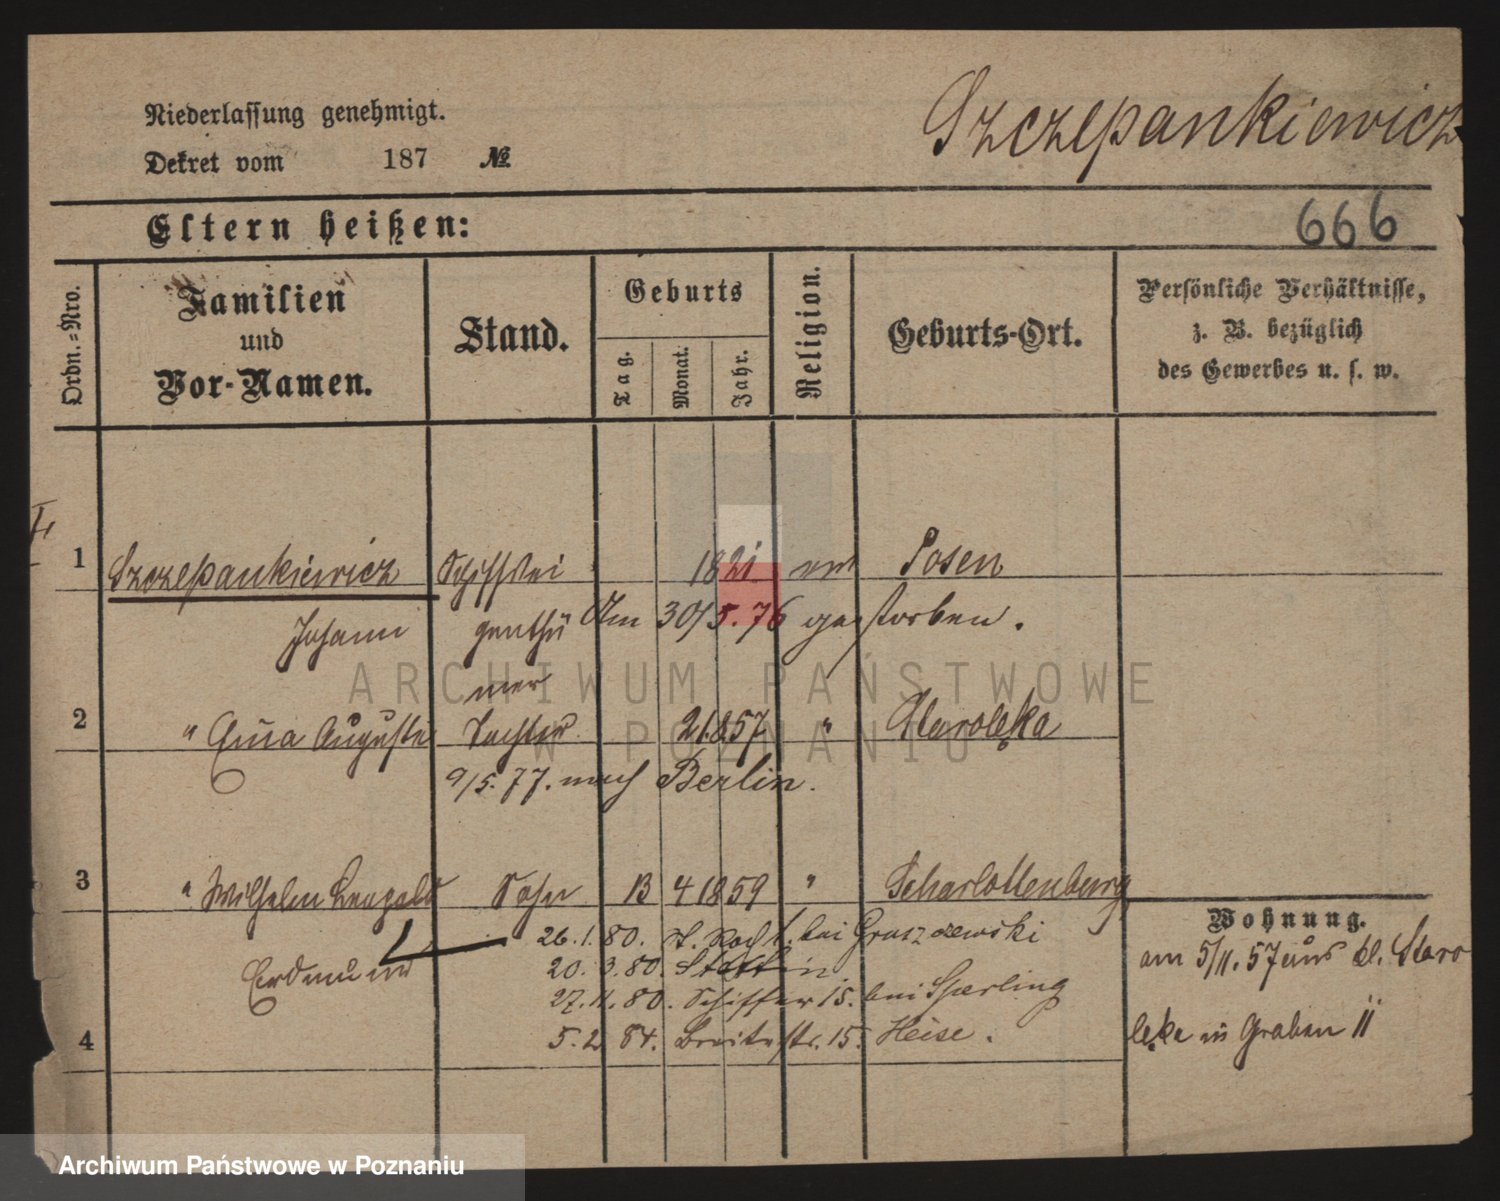 Niederlassung genehmigt.
Dekret vom 187 №
Szczepankiewicz
Eltern heißen:
666
Ordn.-Nro.
Familien
und
Vor-Namen.
Stand.
Geburts
Tag.
Monat.
Jahr.
Religion.
Geburts-Ort.
Persönliche Verhältnisse,
z. B. bezüglich
des Gewerbes u. s. w.
1 Szczepankiewicz Schiffsei 1821 Posen
Johann genthü Am 30/5.76 gestorben.
mer
2 " Auguste Tochter 2 1857 " Starolęka
9/5.77. nach Berlin.
3 " Wilhelm Sohn 13 4 1859 " Scharlottenburg
Erdmann 26.1.80. bei Gruszczewski
20.3.80. Stettin.
27.11.80. Schiffer 15. bei Sperling
4 5.2 84. Breitestr. 15. Heise.
Wohnung.
am 5/11.57 aus kl. Staro
lęka in Graben 11
ARCHIWUM PAŃSTWOWE
W POZNANIU
Archiwum Państwowe w Poznaniu